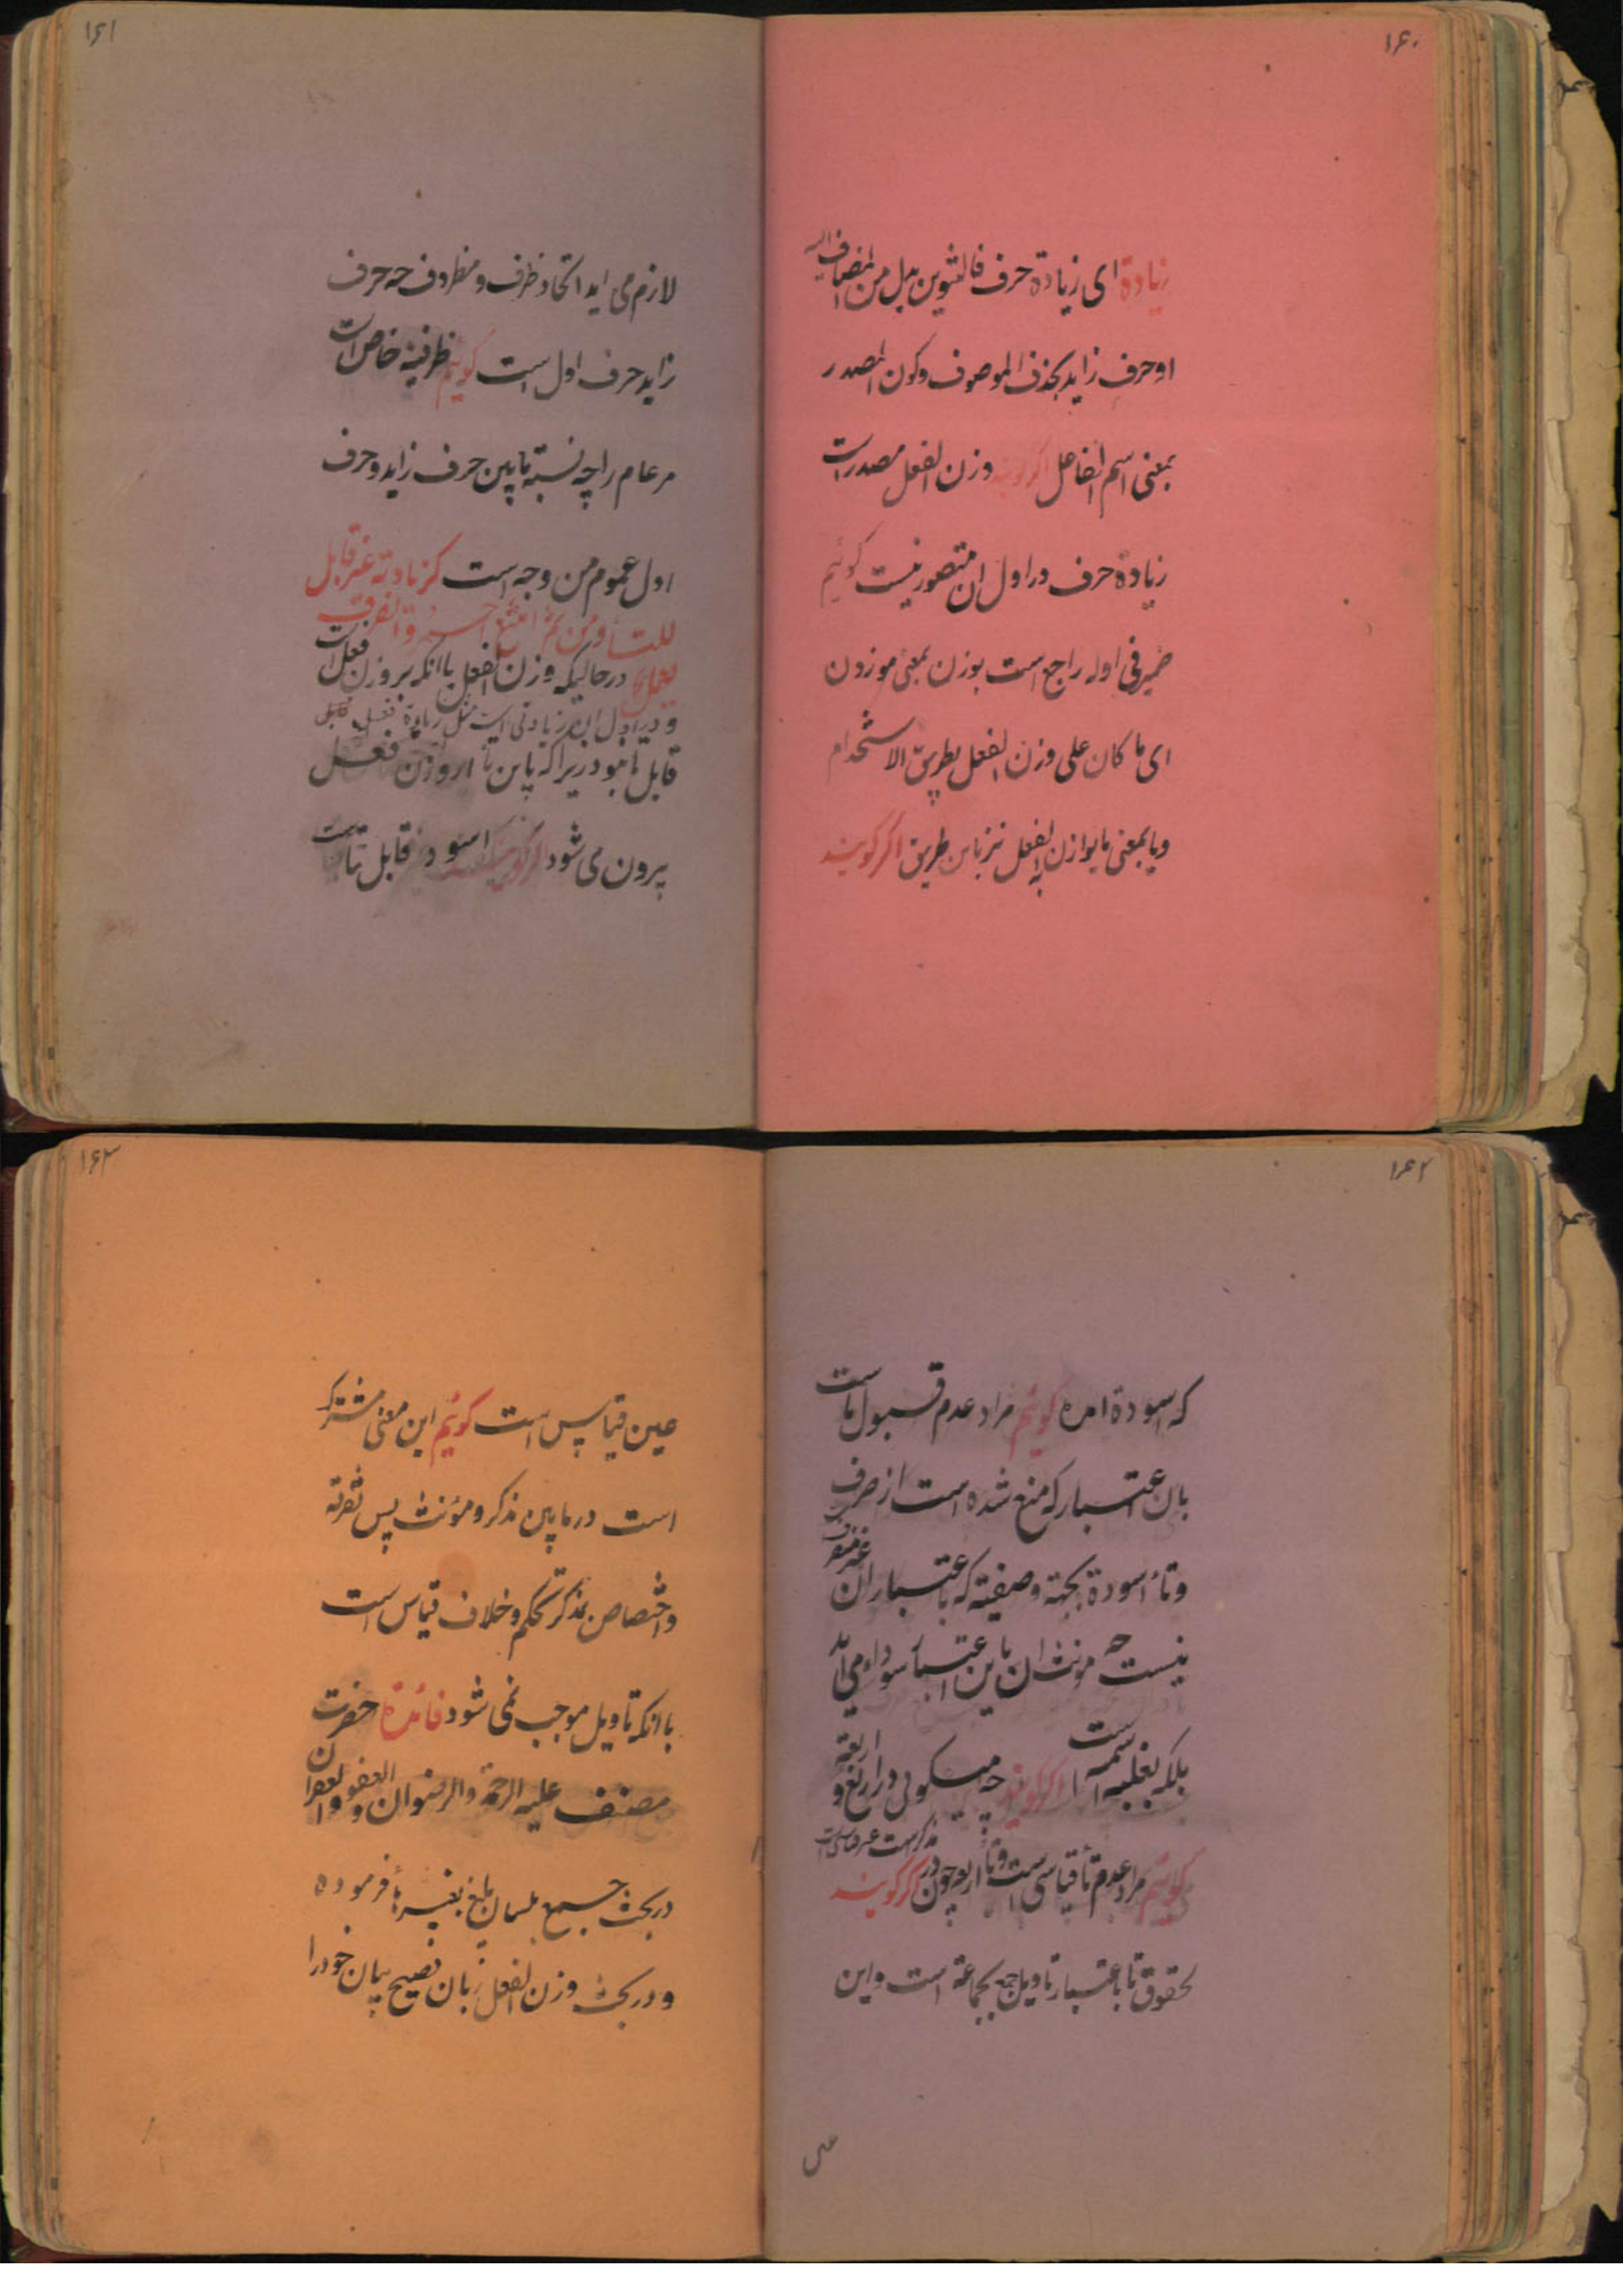 ۱۶۰
زیادة ای زیادة حرف فالتنوین بدل من المضاف الیه
او حرف زاید بحذف الموصوف وکون المصدر
بمعنی اسم الفاعل اکر کویند وزن الفعل مصدر است
زیادة حرف در اول ان متصور نیست کوئیم
ضمیر فی اوله راجع است بوزن بمعنی موزون
ای ما کان علی وزن الفعل بطریق الاستخدام
ویا بمعنی مایوازن به الفعل نیز باین طریق اکر کویند
۱۶۱
لازم می اید اتحاد ظرف و مظروف چه حرف
زاید حرف اول است کوئیم ظرفیة خاص است
مر عام را چه نسبة مابین حرف زاید و حرف
اول عموم من وجه است کزیادته غیر قابل
للتاء ومن ثم امتنع احمر وانصرف
یعمل درحالیکه وزن الفعل یا انکه بر وزن فعل است
و در اول ان زیادتی است مثل زیادة فعل
قابل تا نبود زیرا که باین تا از وزن فعل
بیرون می شود اکر کویند اسود قابل تا است
۱۶۲
که اسودة امده کوئیم مراد عدم قبول تا است
بان اعتبار که منع شده است از صرف
و تاء اسودة بجهة وصفیته که باعتبار ان غیر منصرف
نیست چه مونث ان باین اعتبار سوداء می اید
بلکه بغلبه اسمیه است اکر کویند چه میکوئی در اربع و اربعة
کوئیم مراد عدم تاء قیاسی است و تاء اربعه چون در مذکر است غیر قیاسی است اکر کویند
لحقوق تا باعتبار تاویل جمع بجماعة است و این
۱۶۳
عین قیاس است کوئیم این معنی مشترک
است در مابین مذکر و مؤنث پس تفرقه
و اختصاص بمذکر تحکم و خلاف قیاس است
با انکه تاویل موجب نمی شود فائدة حضرت
مصنف علیه الرحمة والرضوان والعفو والغفران
در بحث جمع بلسان بلیغ بغیرها فرموده
و در بحث وزن الفعل زبان فصیح بیان خود را